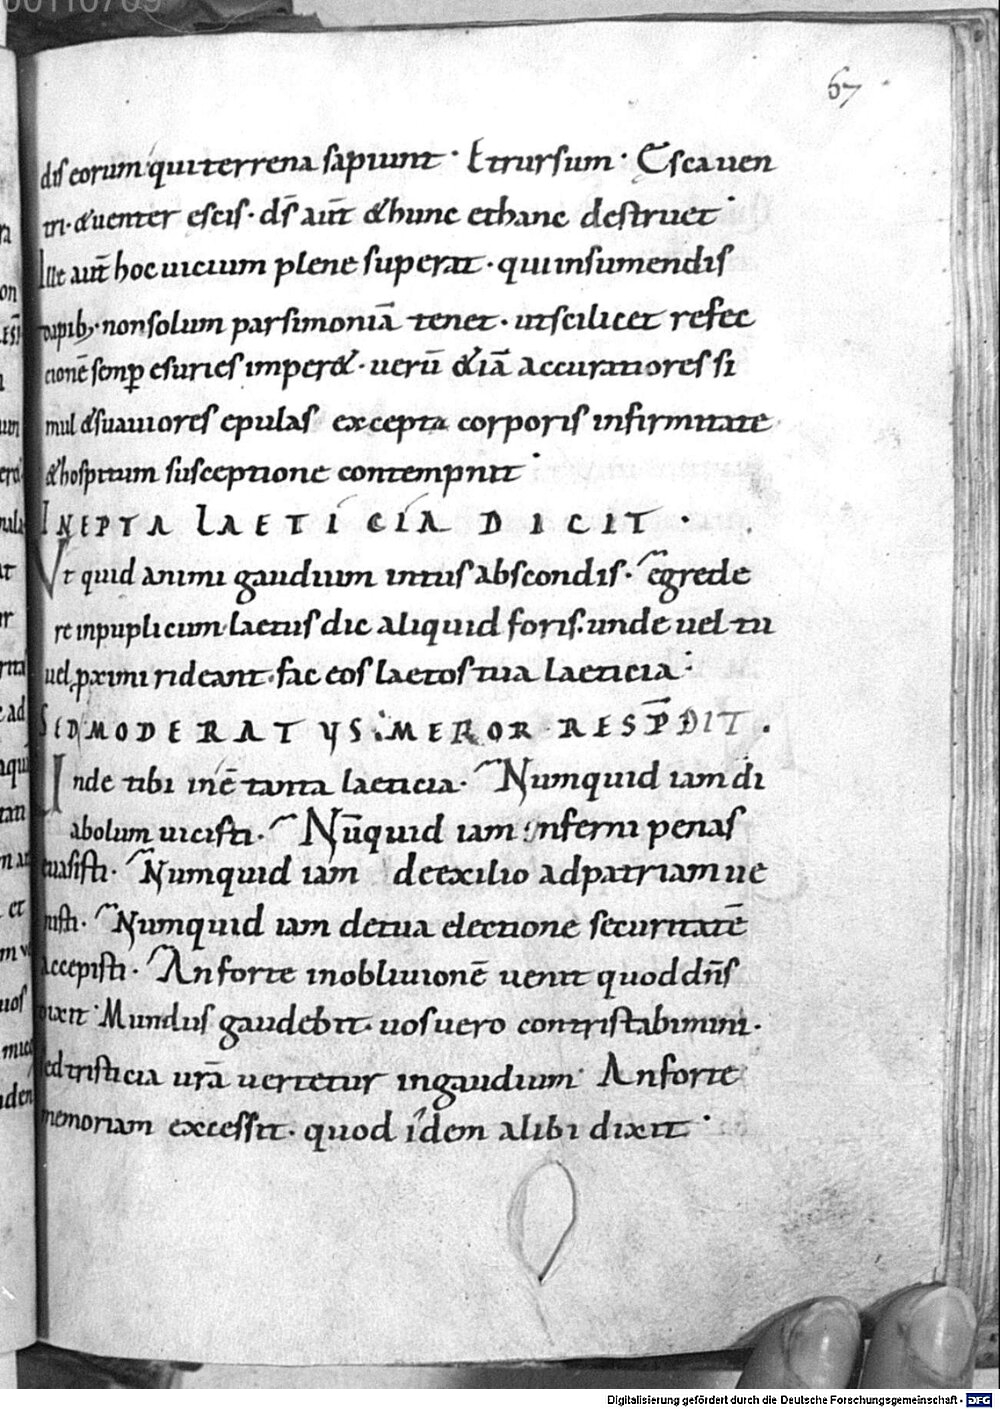 67
dis eorum qui terrena sapiunt · Et rursum · Esca uen
tri · & uenter escis · ds̄ aut̄ & hunc et hanc destruet ·
Ille aut̄ hoc uicium plene superat · qui insumendis
dapib; · non solum parsimoniā tenet · ut scilicet refec
cionē semp̄ esuries imper& · uerū &iā accuratiores si
mul & suauiores epulas excepta corporis infirmitate
& hospitum susceptione contempnit ·
INEPTA LAETICIA DICIT ·
Ut quid animi gaudium intus abscondis · Egrede
re in puplicum · laetus dic aliquid foris · unde uel tu
uel ꝓximi rideant · fac eos laetos tua laeticia ·
SED MODERATUS · MEROR · RESPD̄IT ·
Inde tibi inē tanta laeticia · Numquid iam di
abolum uicisti · Nūquid iam inferni penas
euasisti · Numquid iam de exilio ad patriam ue
nisti · Numquid iam de tua electione securitatē
accepisti · An forte in obliuionē uenit quod dn̄s
dixit · Mundus gaudebit · uos uero contristabimini ·
sed tristicia urā uertetur in gaudium · An forte
memoriam excessit · quod idem alibi dixit ·
Digitalisierung gefördert durch die Deutsche Forschungsgemeinschaft - DFG